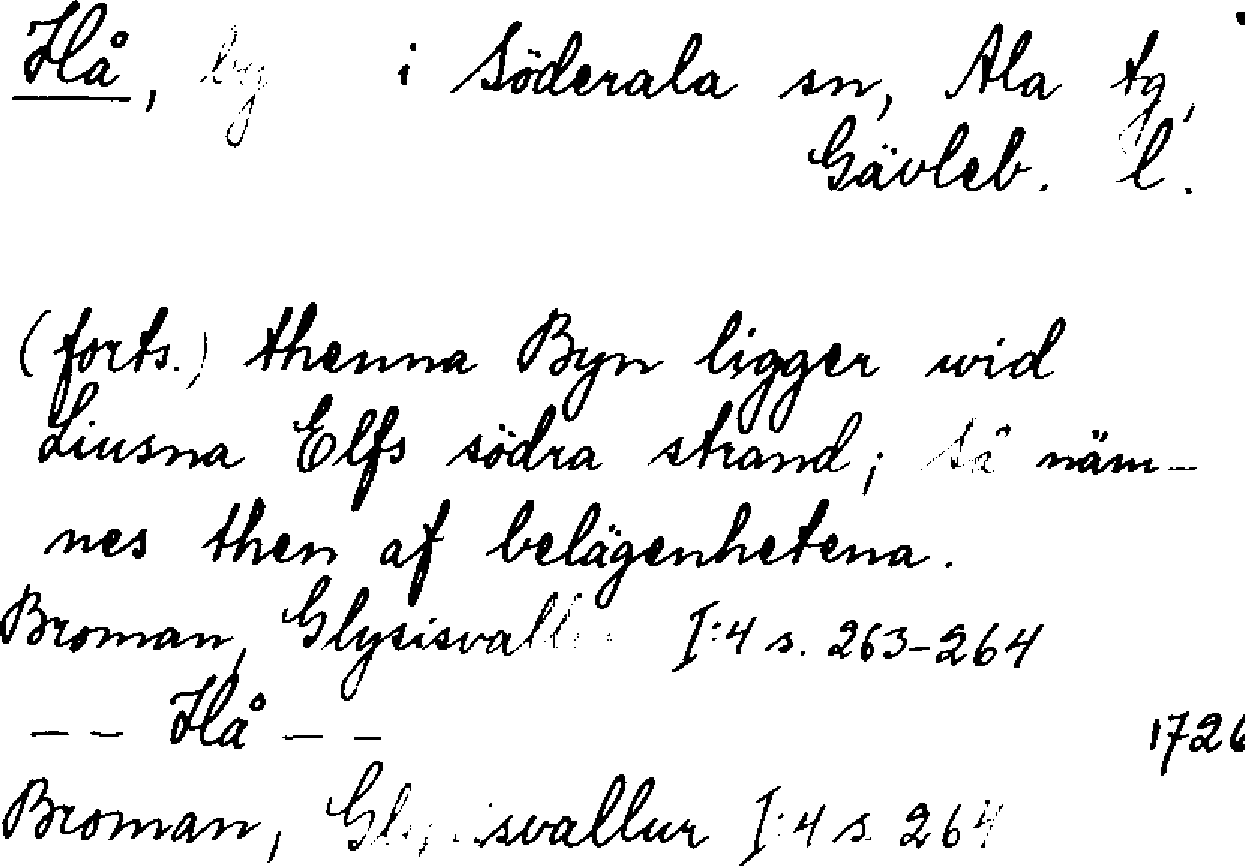 Hå, by i Söderala sn, Ala tg,
Gävleb. l.
(forts.) thenna Byn ligger wid
Liusna Elfs södra strand; så näm-
nes then af belägenhetena.
Broman, Glysisvallur I:4 s. 263-264
-- Hå -- 1726
Broman, Glysisvallur I:4 s. 264